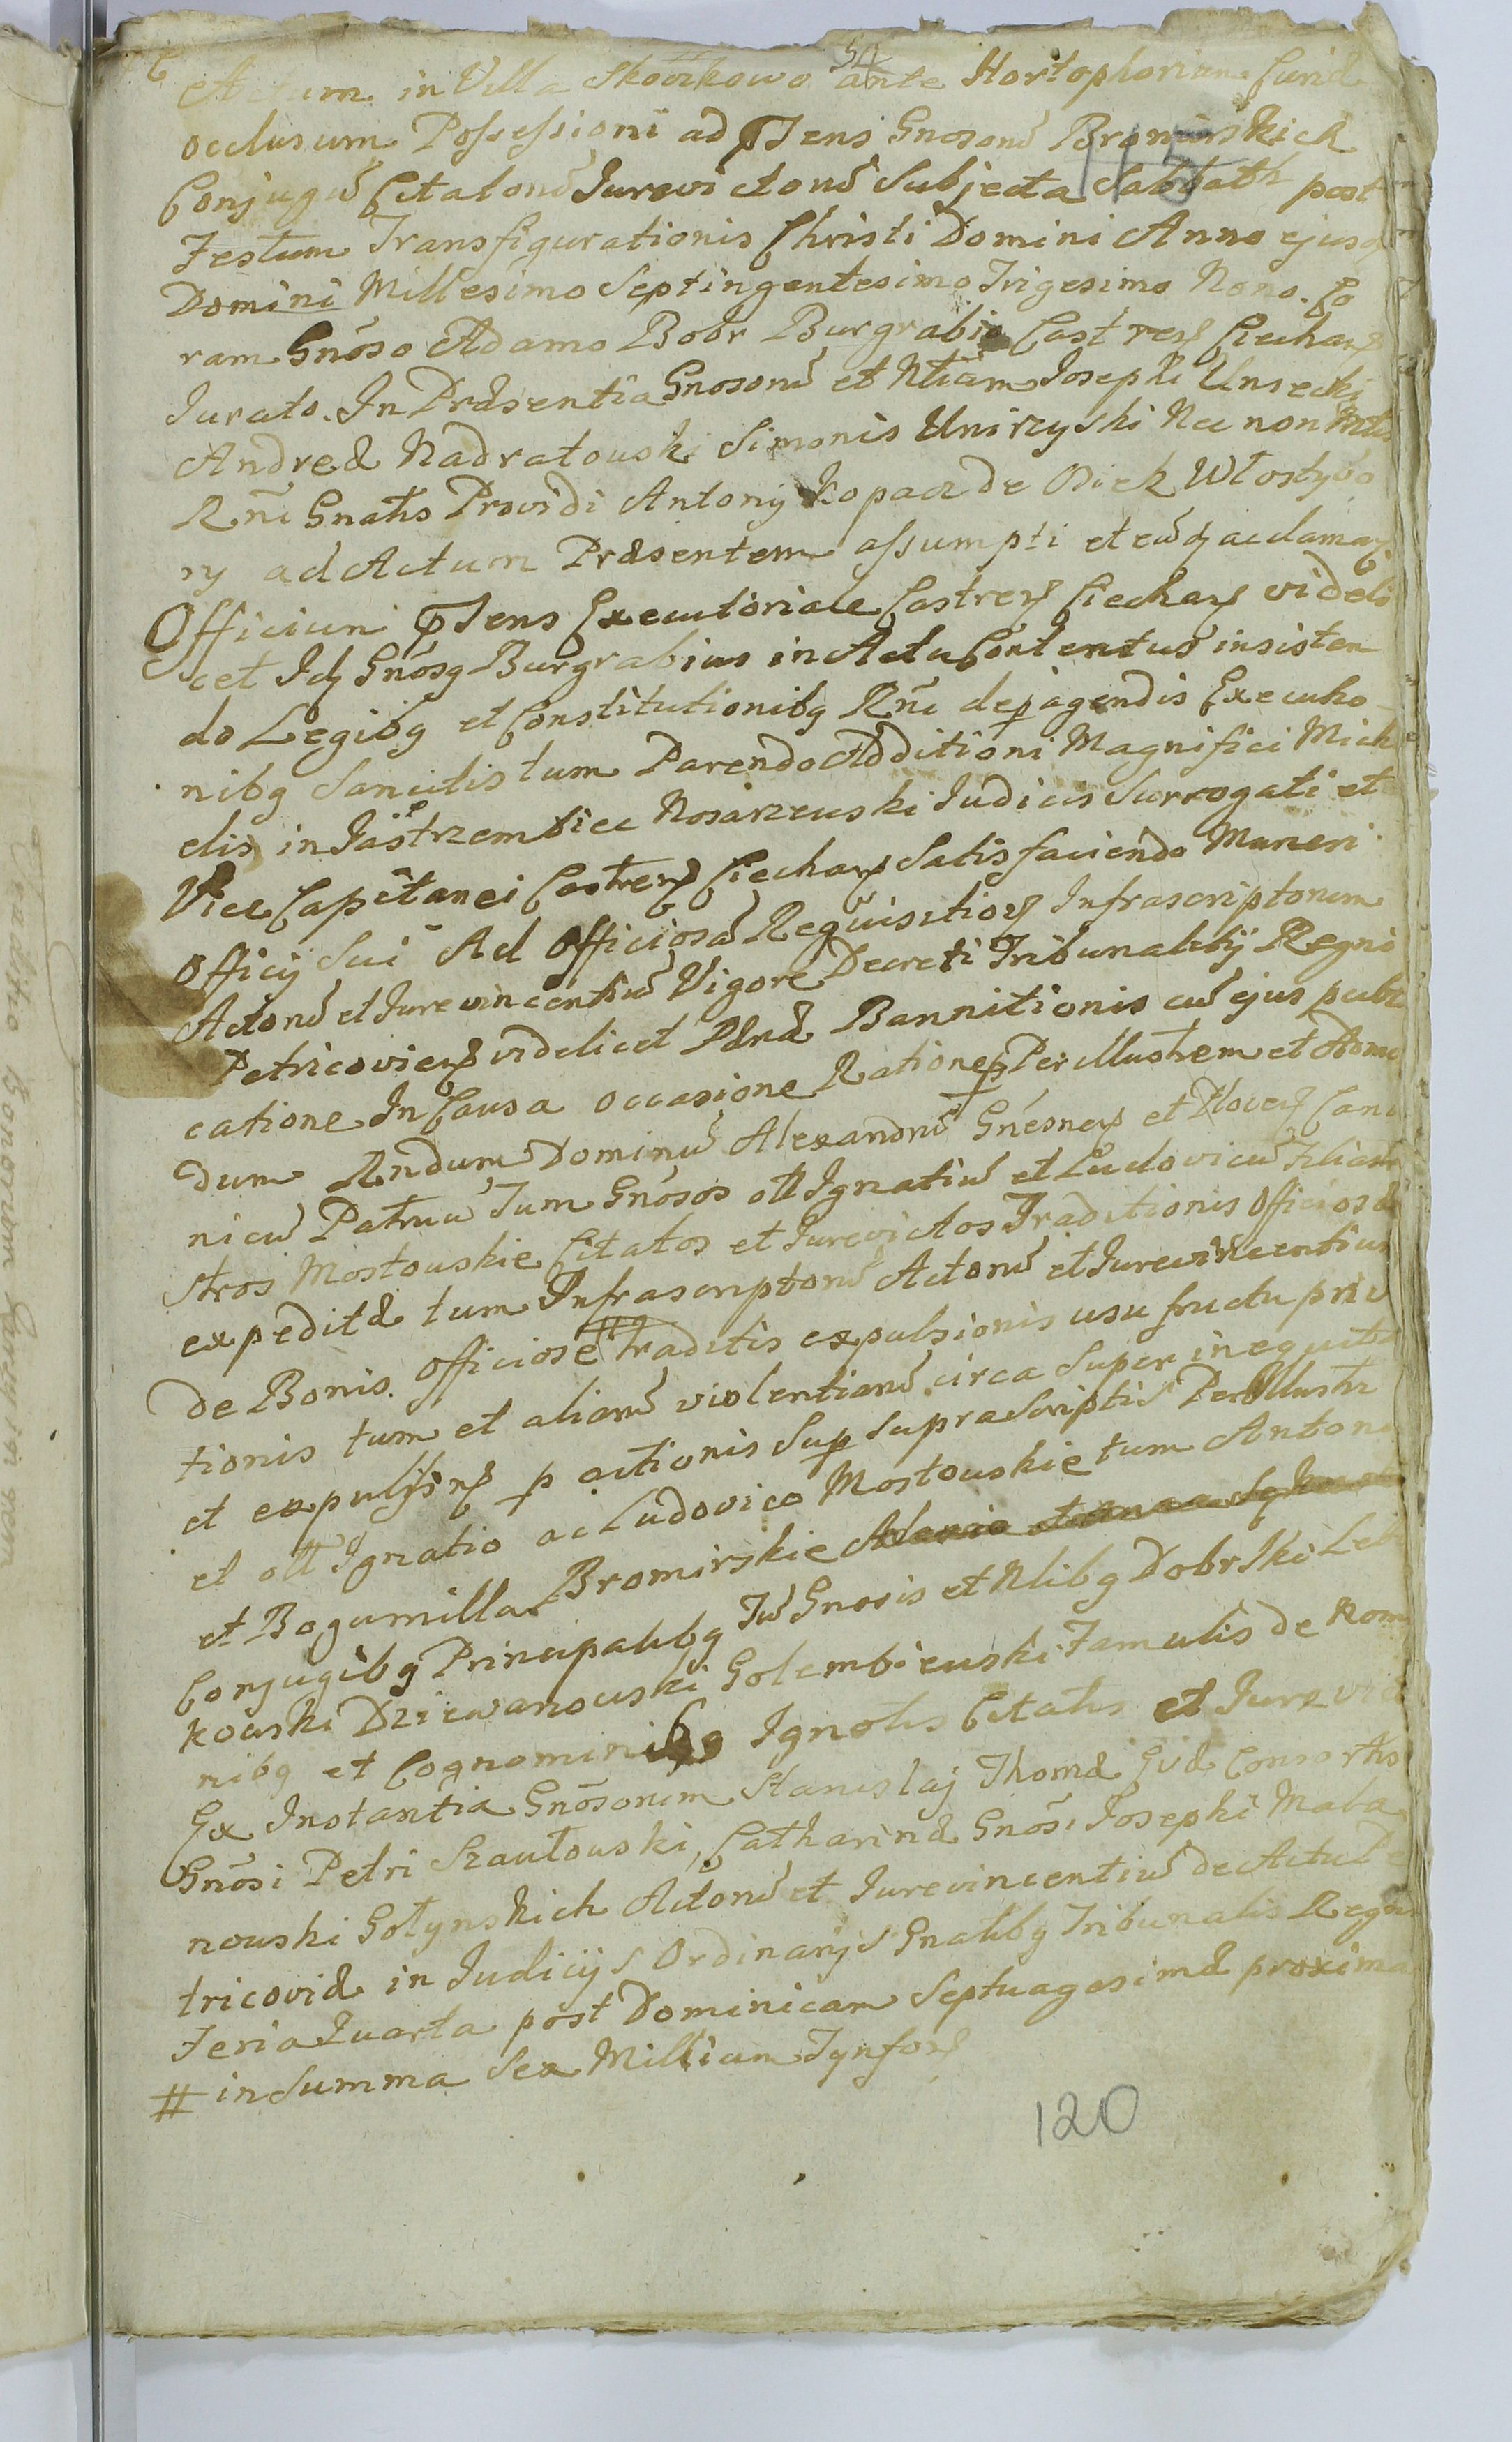 54
Actum in Villa Skoczkowo ante Hortophorium Curiæ
occlusum Possessioni ad Pñs Gnosorũ Bromirskich
Conjugũ Citatorũ Jurevictorũ Subjecta Sabbath post
115
Festum Transfigurationis Christi Domini Anno ejusq
Domini Millesimo Septingentesimo Trigesimo Nono. Co
ram Gnõso Adamo Bobr Burgrabio Castreñ Ciechañ
Jurato. In Præsentia Gnosorũ et Nliũm Josephi Unsecki
Andreæ Nadratowski Simonis Unirzyski Nec non Mtis
Rñi Gnalis Providi Antonij Kopacz de Osiek Włostybo
ry ad Actum Præsentem assumpti et eũq acclamañ
Officium Pñs Executoriale Castreñ Ciechañ videli
cet Idq Gnõsq Burgrabius in Actu Contentus insisten
do Legibq et Constitutionibq Rñi de peragendis Executio
nibq Sancitis tum Parendo Additioni Magnifici Mich
elis in Jastrzembiec Nosarzewski Judicis Surrogati et
Vice Capitanei Castreñ Ciechañ Satisfaciendo Muneri
Officij Sui Ad Officiosã Reqũisitioñ Infrascriptorum
Actorũ et Jurevincentiũ Vigore Decreti Tribunalitij Regni
Petricovieñ videlicet Pænæ Bannitionis cũ ejus publi
catione In Causa occasione Rationẽ Perillustrem et Adm
dum Rndum Dominũ Alexandrũ Gnesneñ et Ploceñ Cano
nicũ Patruũ Tum Gnõsos ott Ignatiũ et Ludovicũ Filia
stros Mostowskie Citatos et Jurevictos Traditionis Officiosæ
expeditæ tum Infrascriptorũ Actorũ et Jurevincentiũ
de Bonis officiosè # traditis expulsionis usu fructu priva
tionis tum et aliarũ violentiarũ circa Super inequita
et expulsioñ p actionis Sup Supra Scriptis Perillustri
et ott Ignatio ac Ludovico Mostowskie tum Antoni
et Bogumilla Bromirskie
Conjugibq Principalibq Tũ Gnosis et Nlibq Dobrski Leb
kowski Dziewanowski Golembiewski Famulis de Nom
nibq et Cognominibq Ignotis Citatis et Jurevictis
Ex Instantia Gnõsorum Stanislaj Thomæ Evæ Consortis
Gnõsi Petri Szautowski, Catharinæ Gnõsi Josephi Mala
nowski Gołynskich Actorũ et Jurevincentiũ de Actu Pe
tricoviæ in Judicijs Ordinarijs Gnalibq Tribunalis Regni
Feria Quarta post Dominicam Septuagesimæ proxima
# in Summa Sex Millium Tynfoñ
120